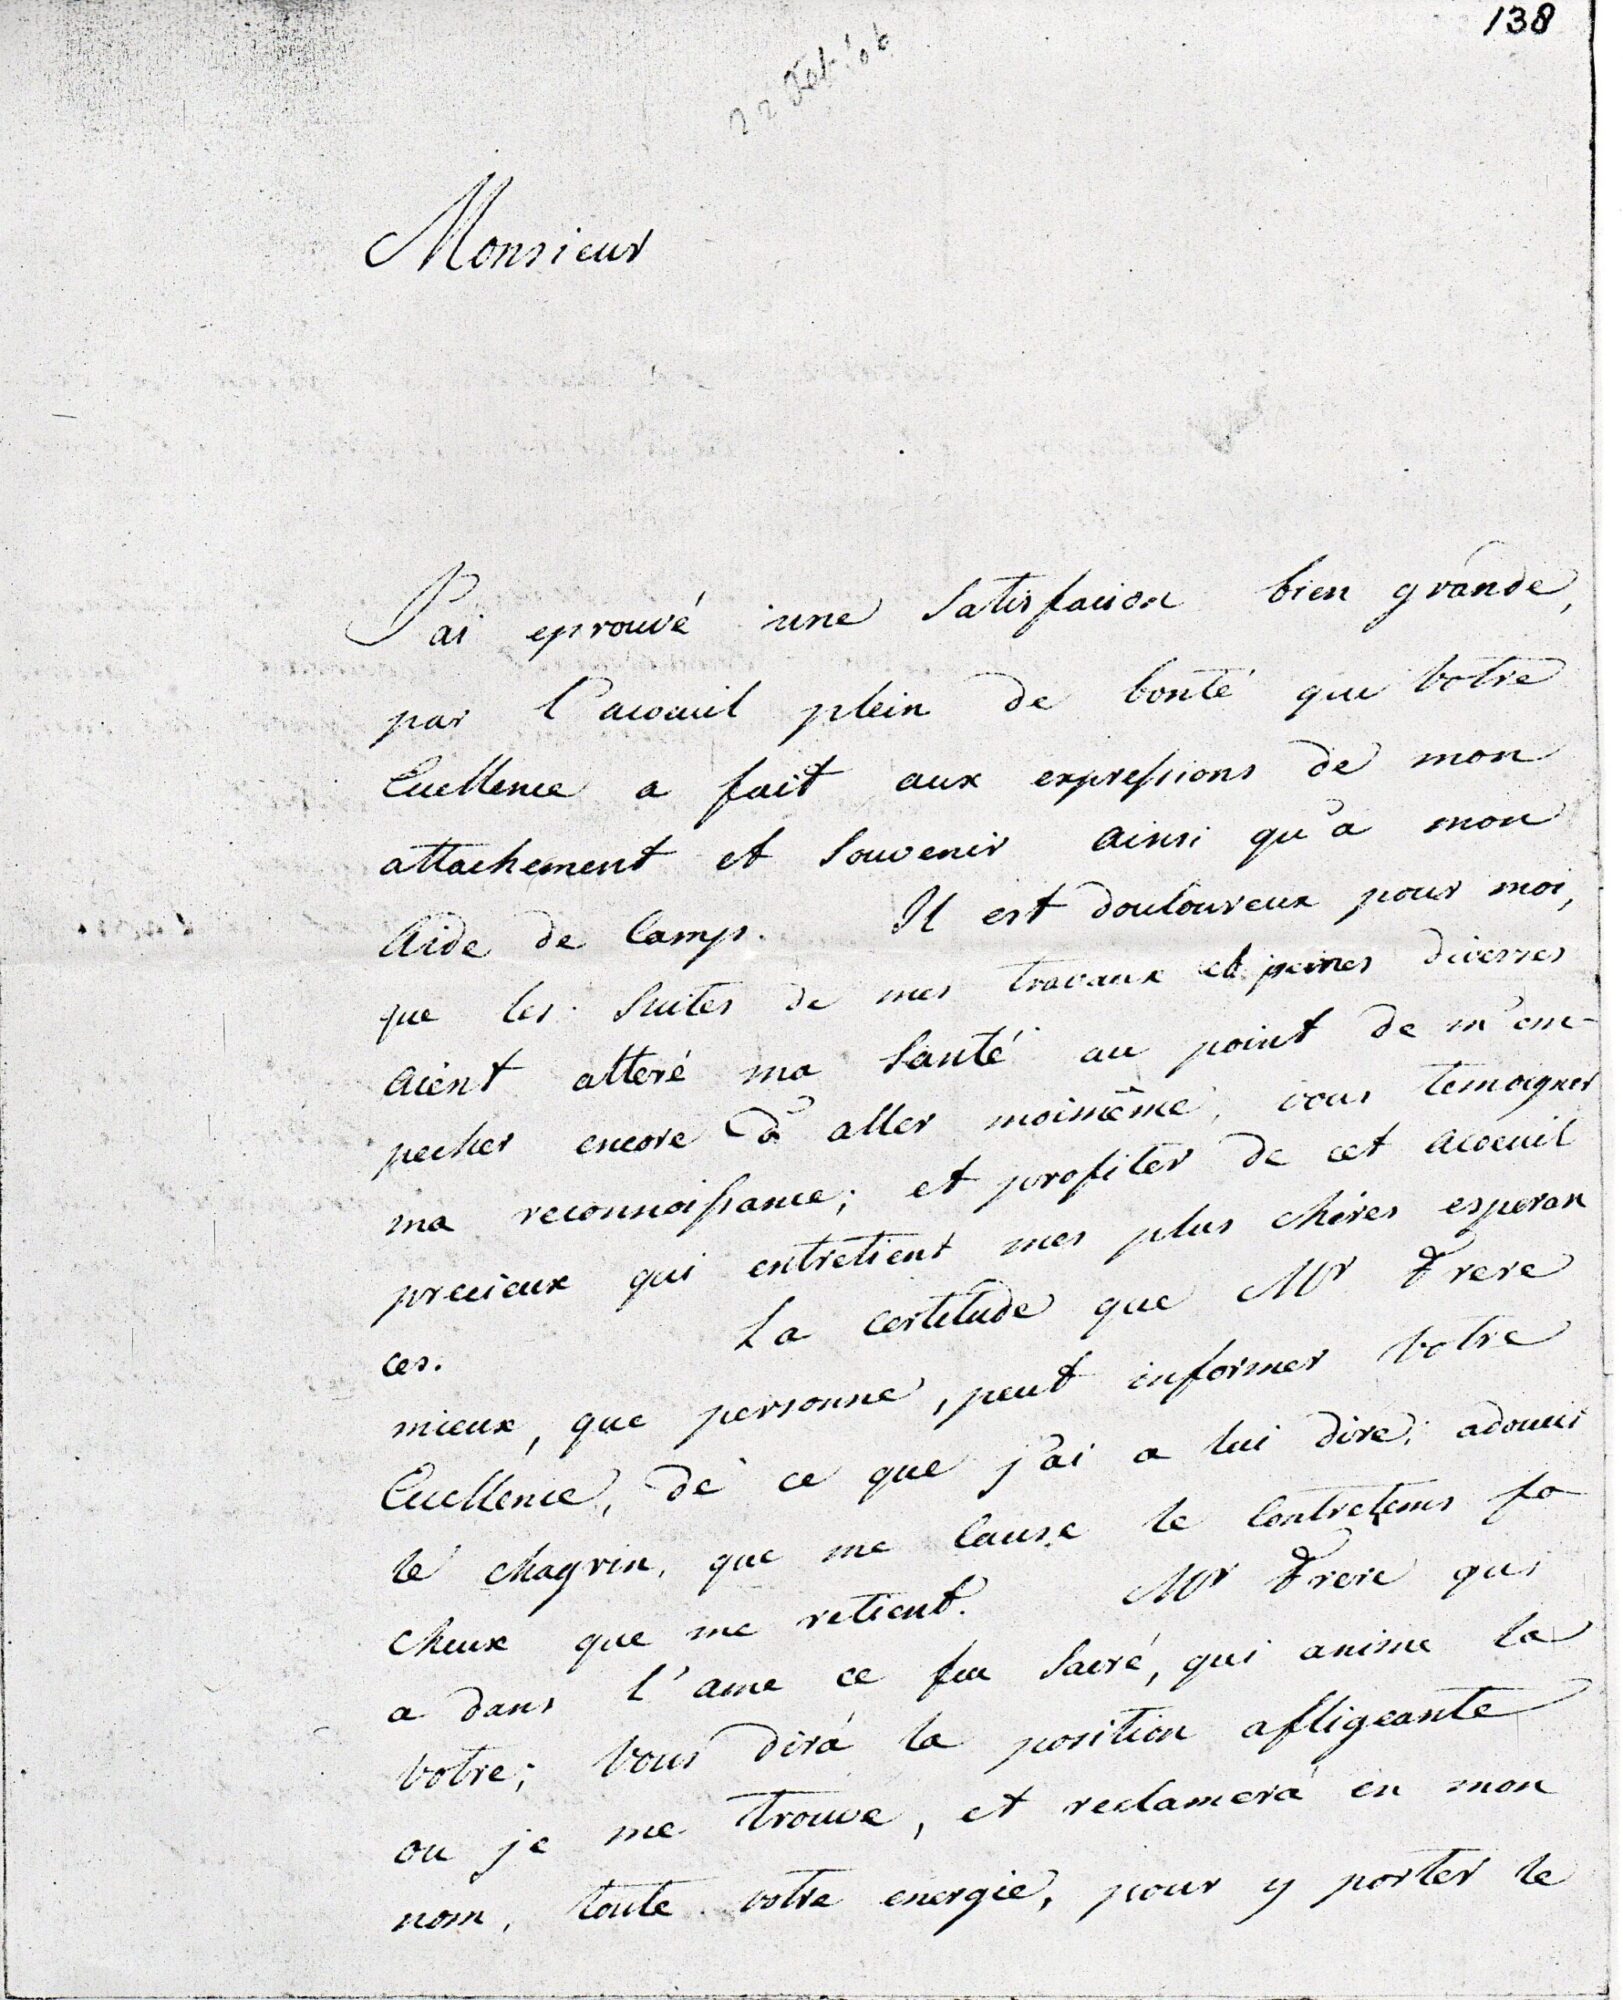 138
22 Feb '06
Monsieur
J'ai eprouvé une Satisfacion bien grande,
par l'acceuil plein de bonté que Votre
Excellence a fait aux expressions de mon
attachement et Souvenir ainsi qu'a mon
Aide de Camp. Il est douloureux pour moi,
que les Suites de mes travaux et peines diverses
aient alteré ma Santé au point de m'em-
pecher encore d'aller moimême, vous temoigner
ma reconnoissance; et profiter de cet acceuil
precieux qui entretient mes plus chères esperan
ces. La certitude que Mr Frere
mieux, que personne, peut informer Votre
Excellence, de ce que j'ai a lui dire; adoucis
le chagrin, que me Cause le Contretems fa
cheux que me retient. Mr Frere qui
a dans l'ame ce feu Sacré, qui anime la
votre; Vous dirá la position afligeante
ou je me trouve, et reclamerá en mon
nom, toute votre energie, pour y porter le